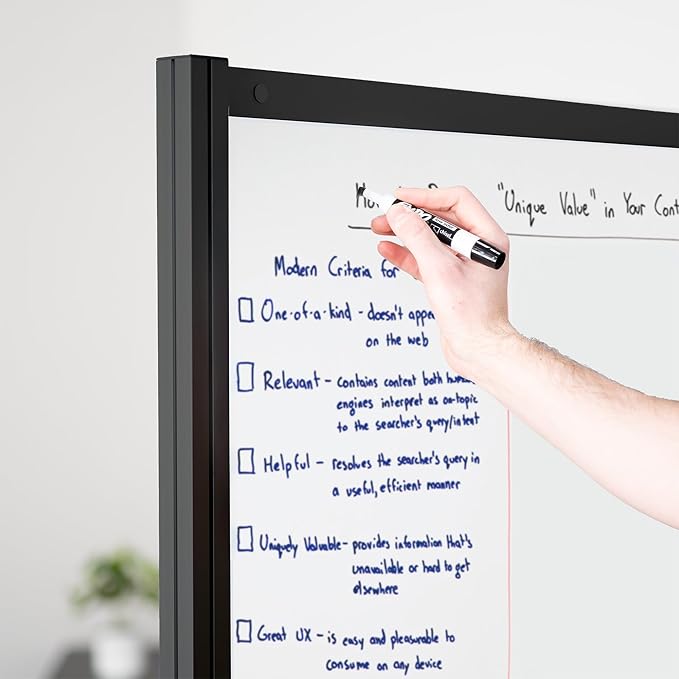 "Unique Value" in Your Cont
Modern Criteria for
One-of-a-kind - doesn't appe
on the web
Relevant - contains content both huma
engines interpret as on-topic
to the searcher's query/intent
Helpful - resolves the searcher's query in
a useful, efficient manner
Uniquely Valuable - provides information that's
unavailable or hard to get
elsewhere
Great UX - is easy and pleasurable to
consume on any device